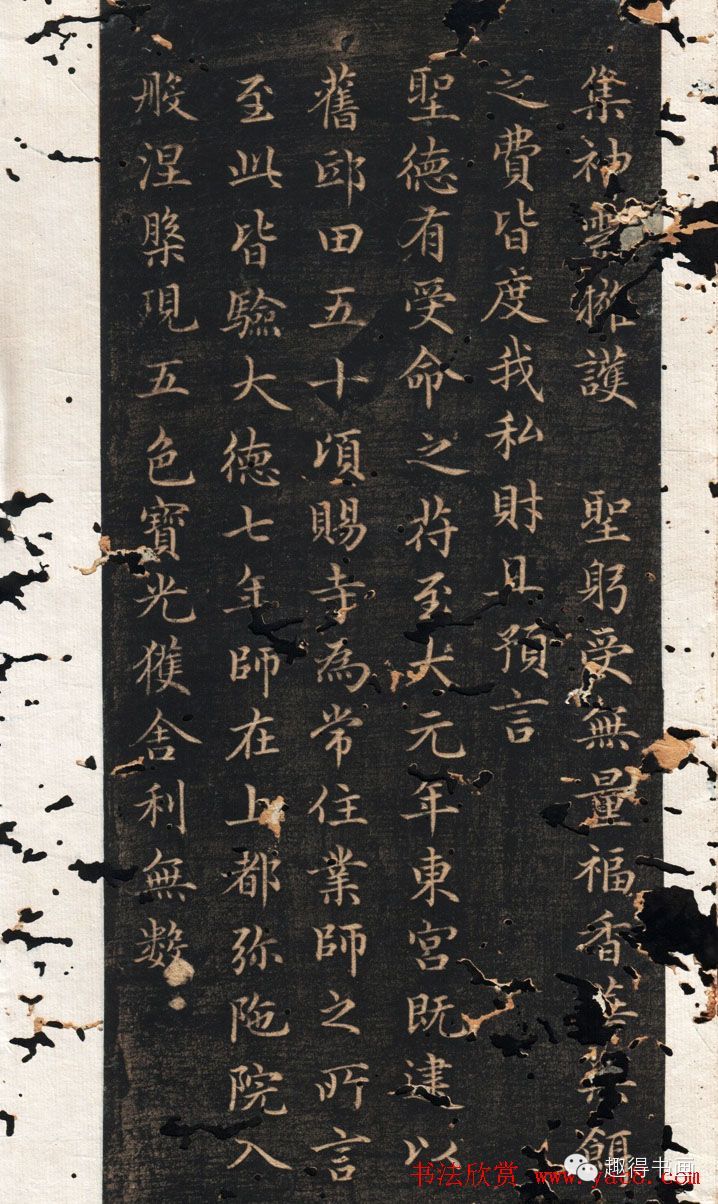 集神靈擁護　聖躬受無量福香華果餌
之費皆度我私財且預言
聖德有受命之苻至大元年東宮既建以
舊邸田五十頃賜寺為常住業師之所言
至此皆驗大德七年師在上都弥陁院入
般涅槃現五色寶光獲舍利無數
书法欣赏 www.yac8.com
趣得书画